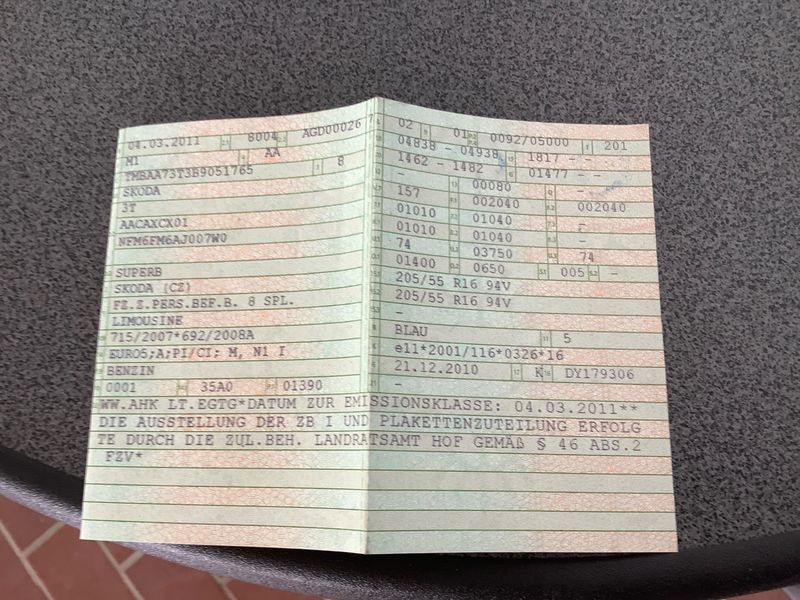 04.03.2011 8004 AGD00026 7
M1 AA
TMBAA73T3B9051765 8
SKODA
3T
AACAXCX01
NFM6FM6AJ007W0
SUPERB
SKODA (CZ)
FZ.Z.PERS.BEF.B. 8 SPL.
LIMOUSINE
715/2007*692/2008A
EURO5;A;PI/CI; M, N1 I
BENZIN
0001 35A0 01390
02 01 0092/05000 201
04838 - 04938 1817 - -
1462 - 1482 01477 - -
- 00080 -
157 002040 002040
01010 01040 -
01010 01040 -
74 03750 74
01400 0650 005 -
205/55 R16 94V
205/55 R16 94V
-
BLAU 5
e11*2001/116*0326*16
21.12.2010 K DY179306
-
WW.AHK LT.EGTG*DATUM ZUR EMISSIONSKLASSE: 04.03.2011**
DIE AUSSTELLUNG DER ZB I UND PLAKETTENZUTEILUNG ERFOLG
TE DURCH DIE ZUL.BEH. LANDRATSAMT HOF GEMÄß § 46 ABS.2
FZV*